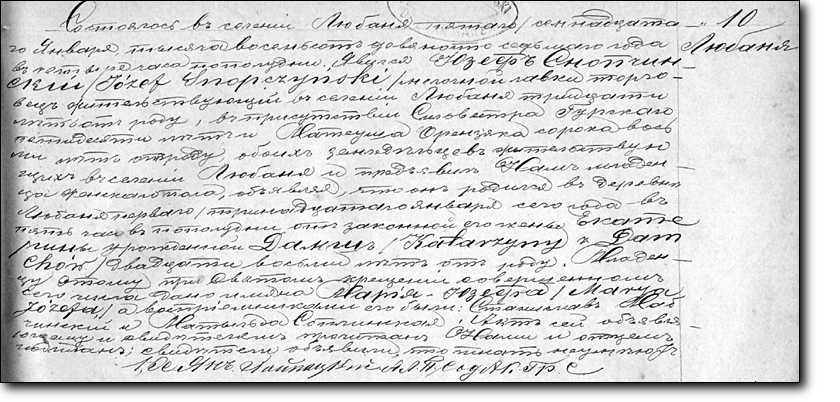 Состоялось въ селеніи Любаня пятаго/семнадцата-
го Января тысяча восемьсотъ девяносто седьмаго года
въ четыре часа пополудни. Явился Юзефъ Снопчин-
скій/Józef Snopczynski/ мелочной лавки торго-
вецъ жительствующій въ селеніи Любаня тридцати
лѣтъ отъ роду, въ присутствіи Сильвестра Гурскаго
пятидесяти лѣтъ и Матеуша сорока вось-
ми лѣтъ отъ роду, обоихъ жительствую-
щихъ въ селеніи Любаня и предъявилъ Намъ младен-
ца женскаго пола, объявляя, что онъ родился въ деревни
Любаня перваго/тринадцатаго января сего года въ
пять часовъ пополудни отъ законной его жены Екате-
рины урожденной /Katarzyny z Dam
chów/ двадцати восьми лѣтъ отъ роду. Младен-
цу этому при Святомъ крещеніи совершенномъ
сего числа дано имя Марія-Юзефа/Marya
Józefa/ а воспріемниками его были: Станиславъ
и Матильда Сопчинская. Актъ сей объявля-
ющему и свидѣтелямъ прочитанъ Нами и отцемъ
подписанъ; свидѣтели объявили, что писать неумѣютъ
Кс Янъ А. П. Сод. Ак. Гр. С
10
Любаня